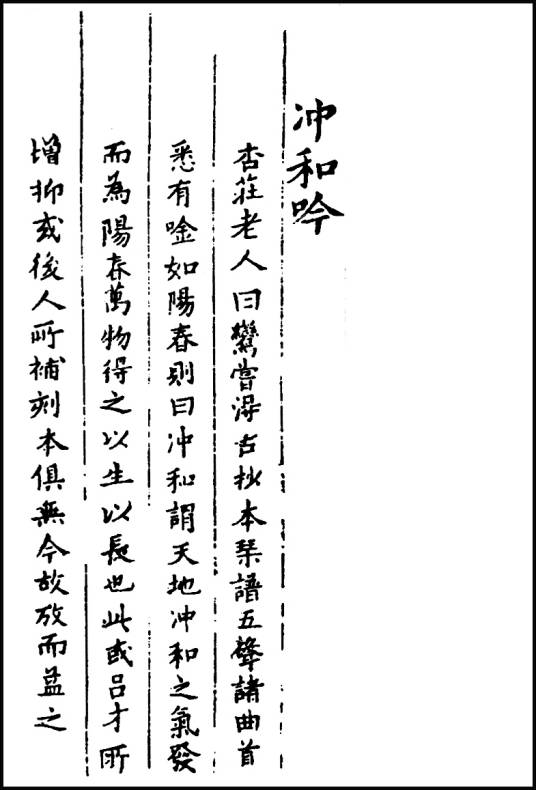 冲和吟
杏莊老人曰鸞嘗得古抄本琴譜五聲諸曲首
悉有唫如陽春則曰冲和謂天地冲和之氣發
而為陽春萬物得之以生以長也此或呂才所
增抑或後人所補刻本俱無今故攷而益之